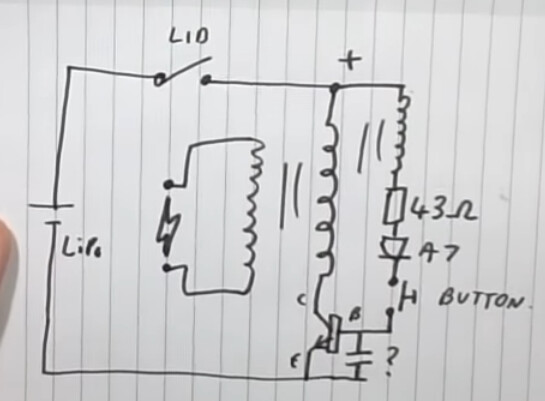 LID
+
43Ω
A7
LiPo
C
B
H BUTTON.
E
?